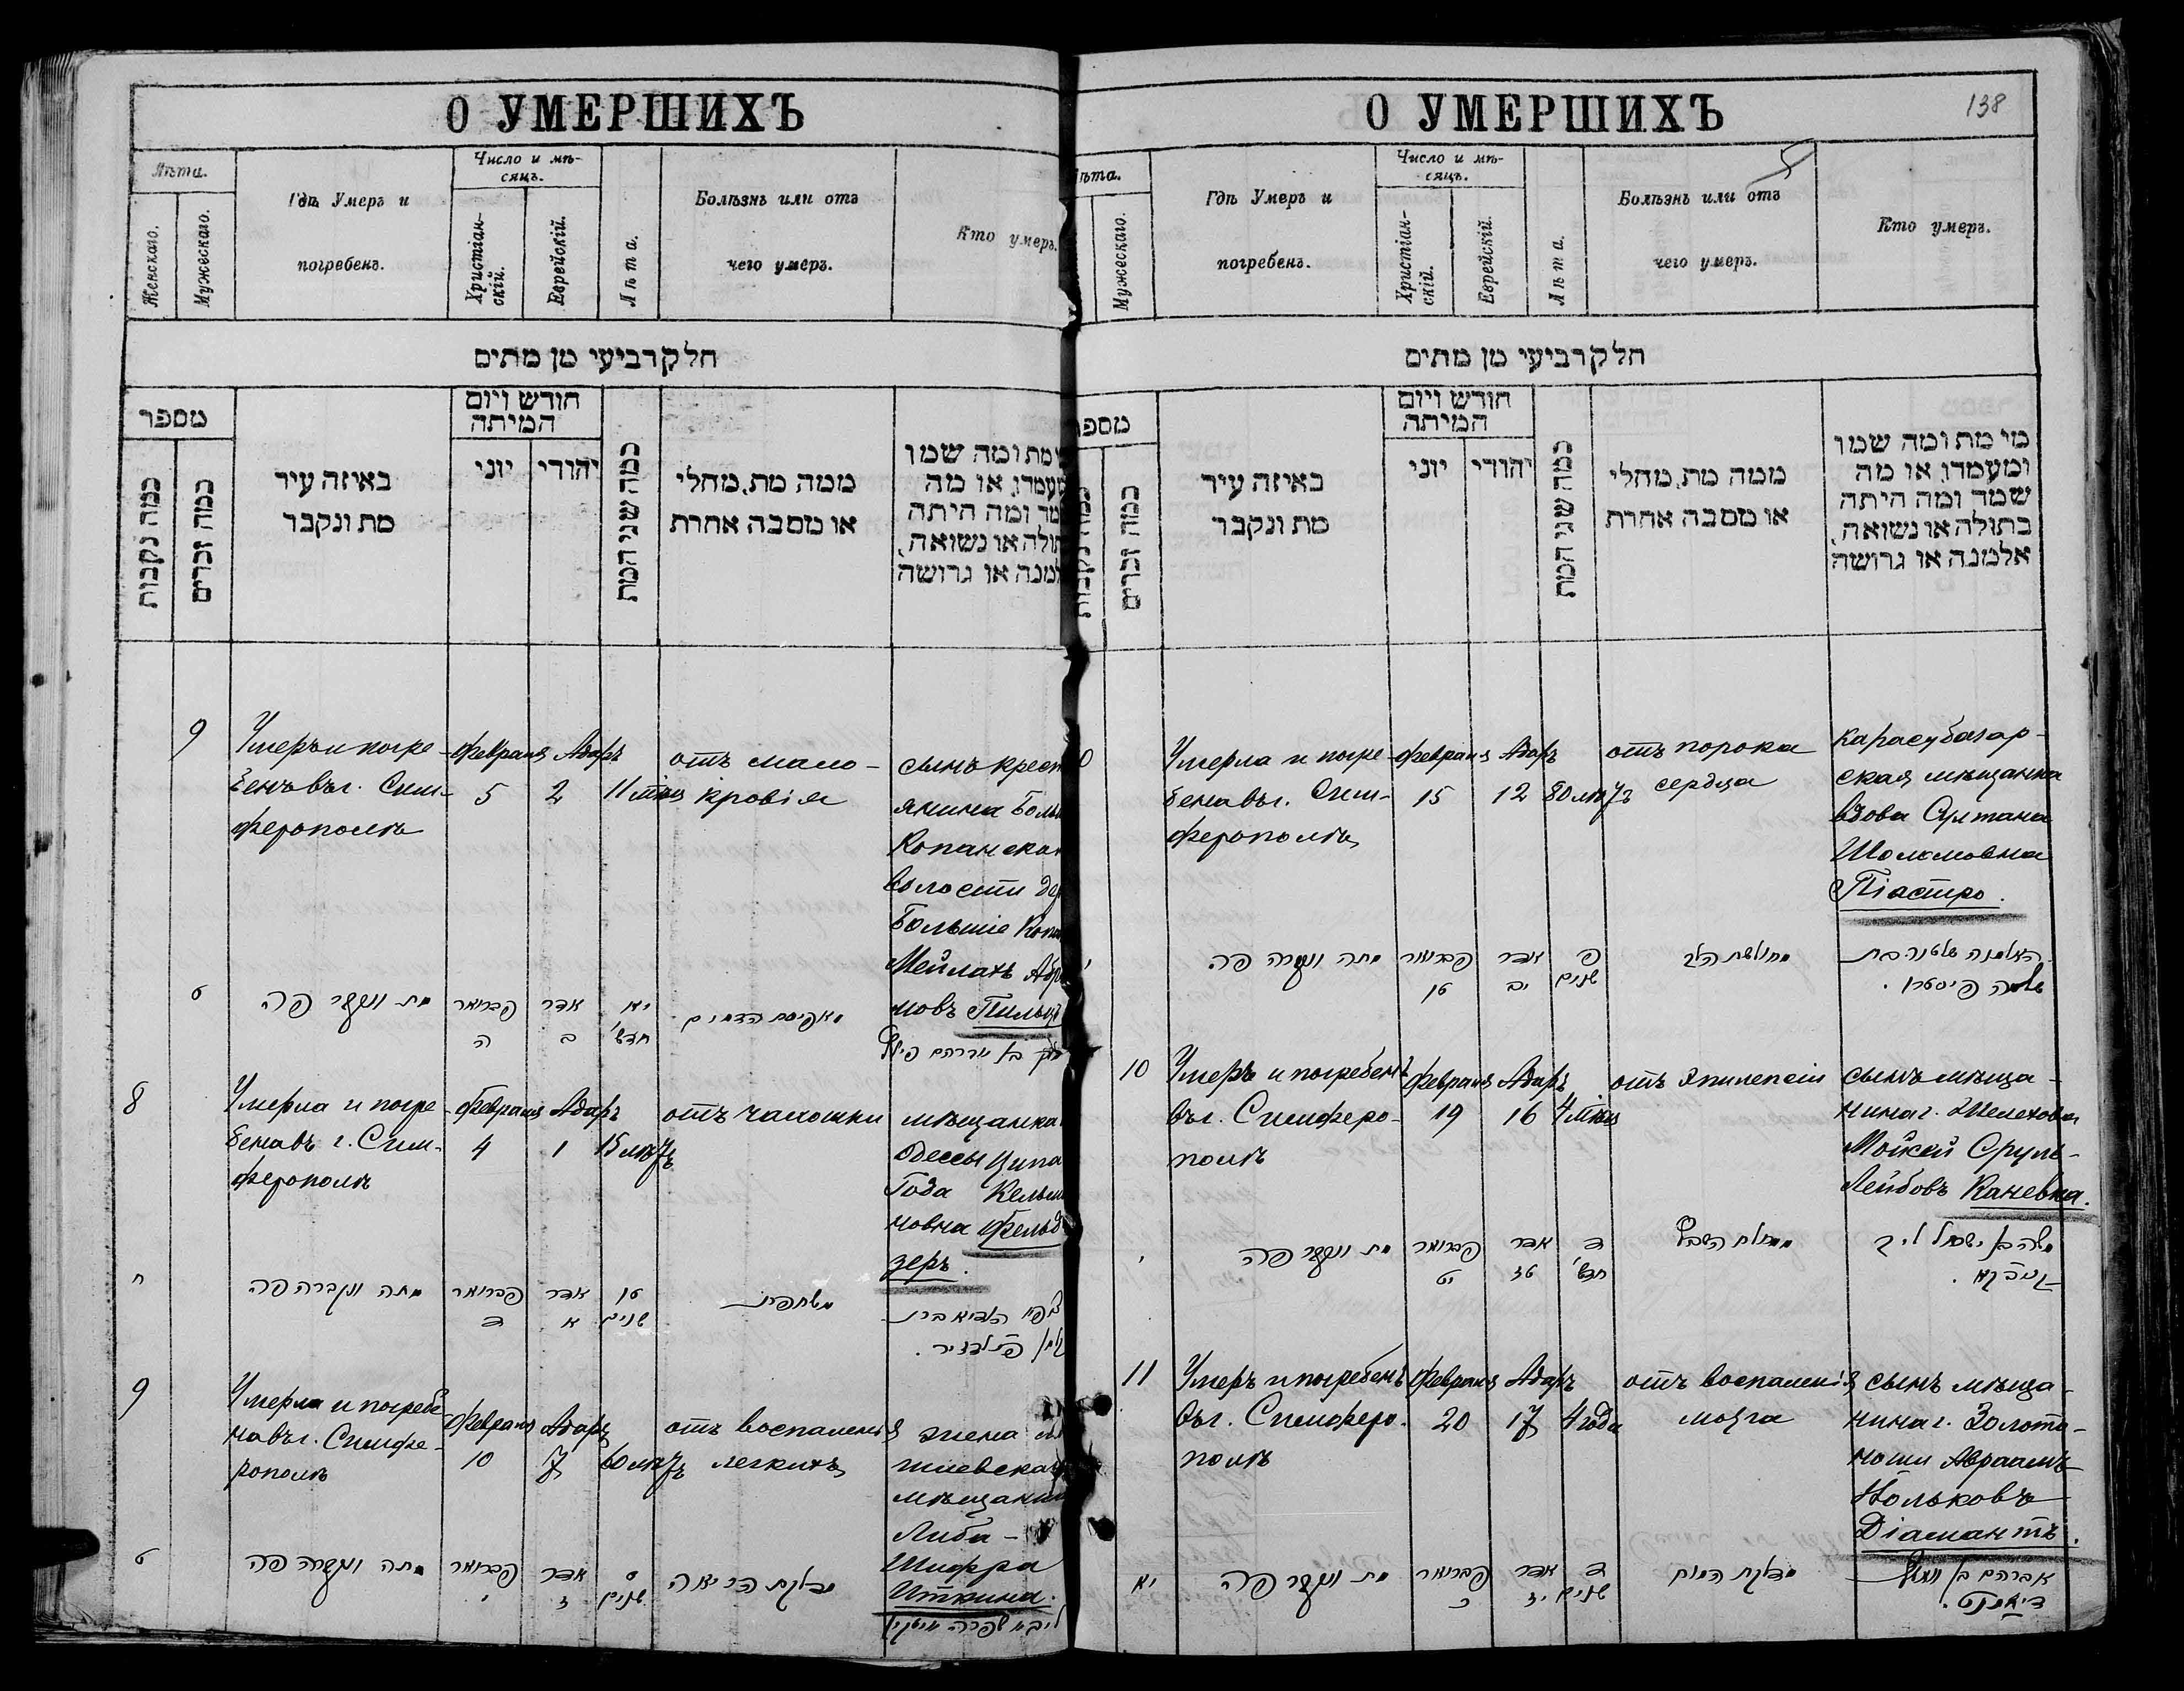 О УМЕРШИХЪ
Лѣта.
Женскаго.
Мужескаго.
Гдѣ Умеръ и
погребенъ.
Число и мѣ-
сяцъ.
Христіан-
скій.
Еврейскій.
Лѣта.
Болѣзнь или отъ
чего умеръ.
Кто умеръ.
חלק רביעי מן מתים
מספר
כמה נקבות
כמה זכרים
באיזה עיר
מת ונקבר
חודש ויום
המיתה
יוני
יהודי
כמה שני המת
ממה מת, מחלי
או מסבה אחרת
מת ומה שמו
או מה
ומה היתה
או נשואה,
או גרושה
9
Умеръ и погре-
бенъ въ г. Сим-
ферополѣ
Февраля
5
Адаръ
2
11 мѣц
отъ мало-
кровія
сынъ крест
янина Боль
Копанской
волости де
Больше Копа
Мейлахъ Абра
мовъ Пильц
ט
מת ונקבר פה
פברואר
ה
אדר
ב
יא
חדש'
מאפיסת הדמים
בן אברהם
8
Умерла и погре-
бена въ г. Сим-
ферополѣ
Февраля
4
Адаръ
1
15 лѣтъ
отъ чахотки
мѣщанка
Одессы Ципа
Года Кельм
новна Фельд
зеръ.
ח
מתה ונקברה פה
פברואר
ד
אדר
א
טו
שנים
משחפת
9
Умерла и погребе
на въ г. Симфе-
рополѣ
Февраля
10
Адаръ
7
60 лѣтъ
отъ воспаленія
легкихъ
жена
гилевская
мѣщанин
Либа-
Шифра
Иткина.
ט
מתה ונקברה פה
פברואר
י
אדר
ז
ס
שנים
מדלקת הריאה
ליבא שפרה איטקין
О УМЕРШИХЪ
138
ѣта.
Мужескаго.
Гдѣ Умеръ и
погребенъ.
Число и мѣ-
сяцъ.
Христіан-
скій.
Еврейскій.
Лѣта.
Болѣзнь или отъ
чего умеръ.
Кто умеръ.
חלק רביעי מן מתים
מספר
כמה נקבות
כמה זכרים
באיזה עיר
מת ונקבר
חודש ויום
המיתה
יוני
יהודי
כמה שני המת
ממה מת, מחלי
או מסבה אחרת
מי מת ומה שמו
ומעמדו, או מה
שמה ומה היתה
בתולה או נשואה,
אלמנה או גרושה
0
Умерла и погре-
бена въ г. Сим-
ферополѣ
Февраля
15
Адаръ
12
80 лѣтъ
отъ порока
сердца
Карасубазар-
ская мѣщанка
вдова Султана
Шоломовна
Піастро.
מתה ונקברה פה
פברואר
טו
אדר
יב
פ
שנים
מחולשת הלב
האלמנה שלטנה בת
שלמה פיסטרו.
10
Умеръ и погребенъ
въ г. Симферо-
полѣ
Февраля
19
Адаръ
16
4 мѣц
отъ эпилепсіи
сынъ мѣща-
нина г.
Мойсей Сруль-
Лейбовъ Каневка.
י
מת ונקבר פה
פברואר
יט
אדר
טז
ד
חדש'
משה בן ישראל ליב
קנבקא.
11
Умеръ и погребенъ
въ г. Симферо-
полѣ
Февраля
20
Адаръ
17
4 года
отъ воспаленія
мозга
сынъ мѣща-
нина г. Золото-
ноши Авраамъ
Нольковъ
Діамантъ.
יא
מת ונקבר פה
פברואר
כ
אדר
יז
ד
שנים
מדלקת המוח
אברהם בן
דיאמנט.